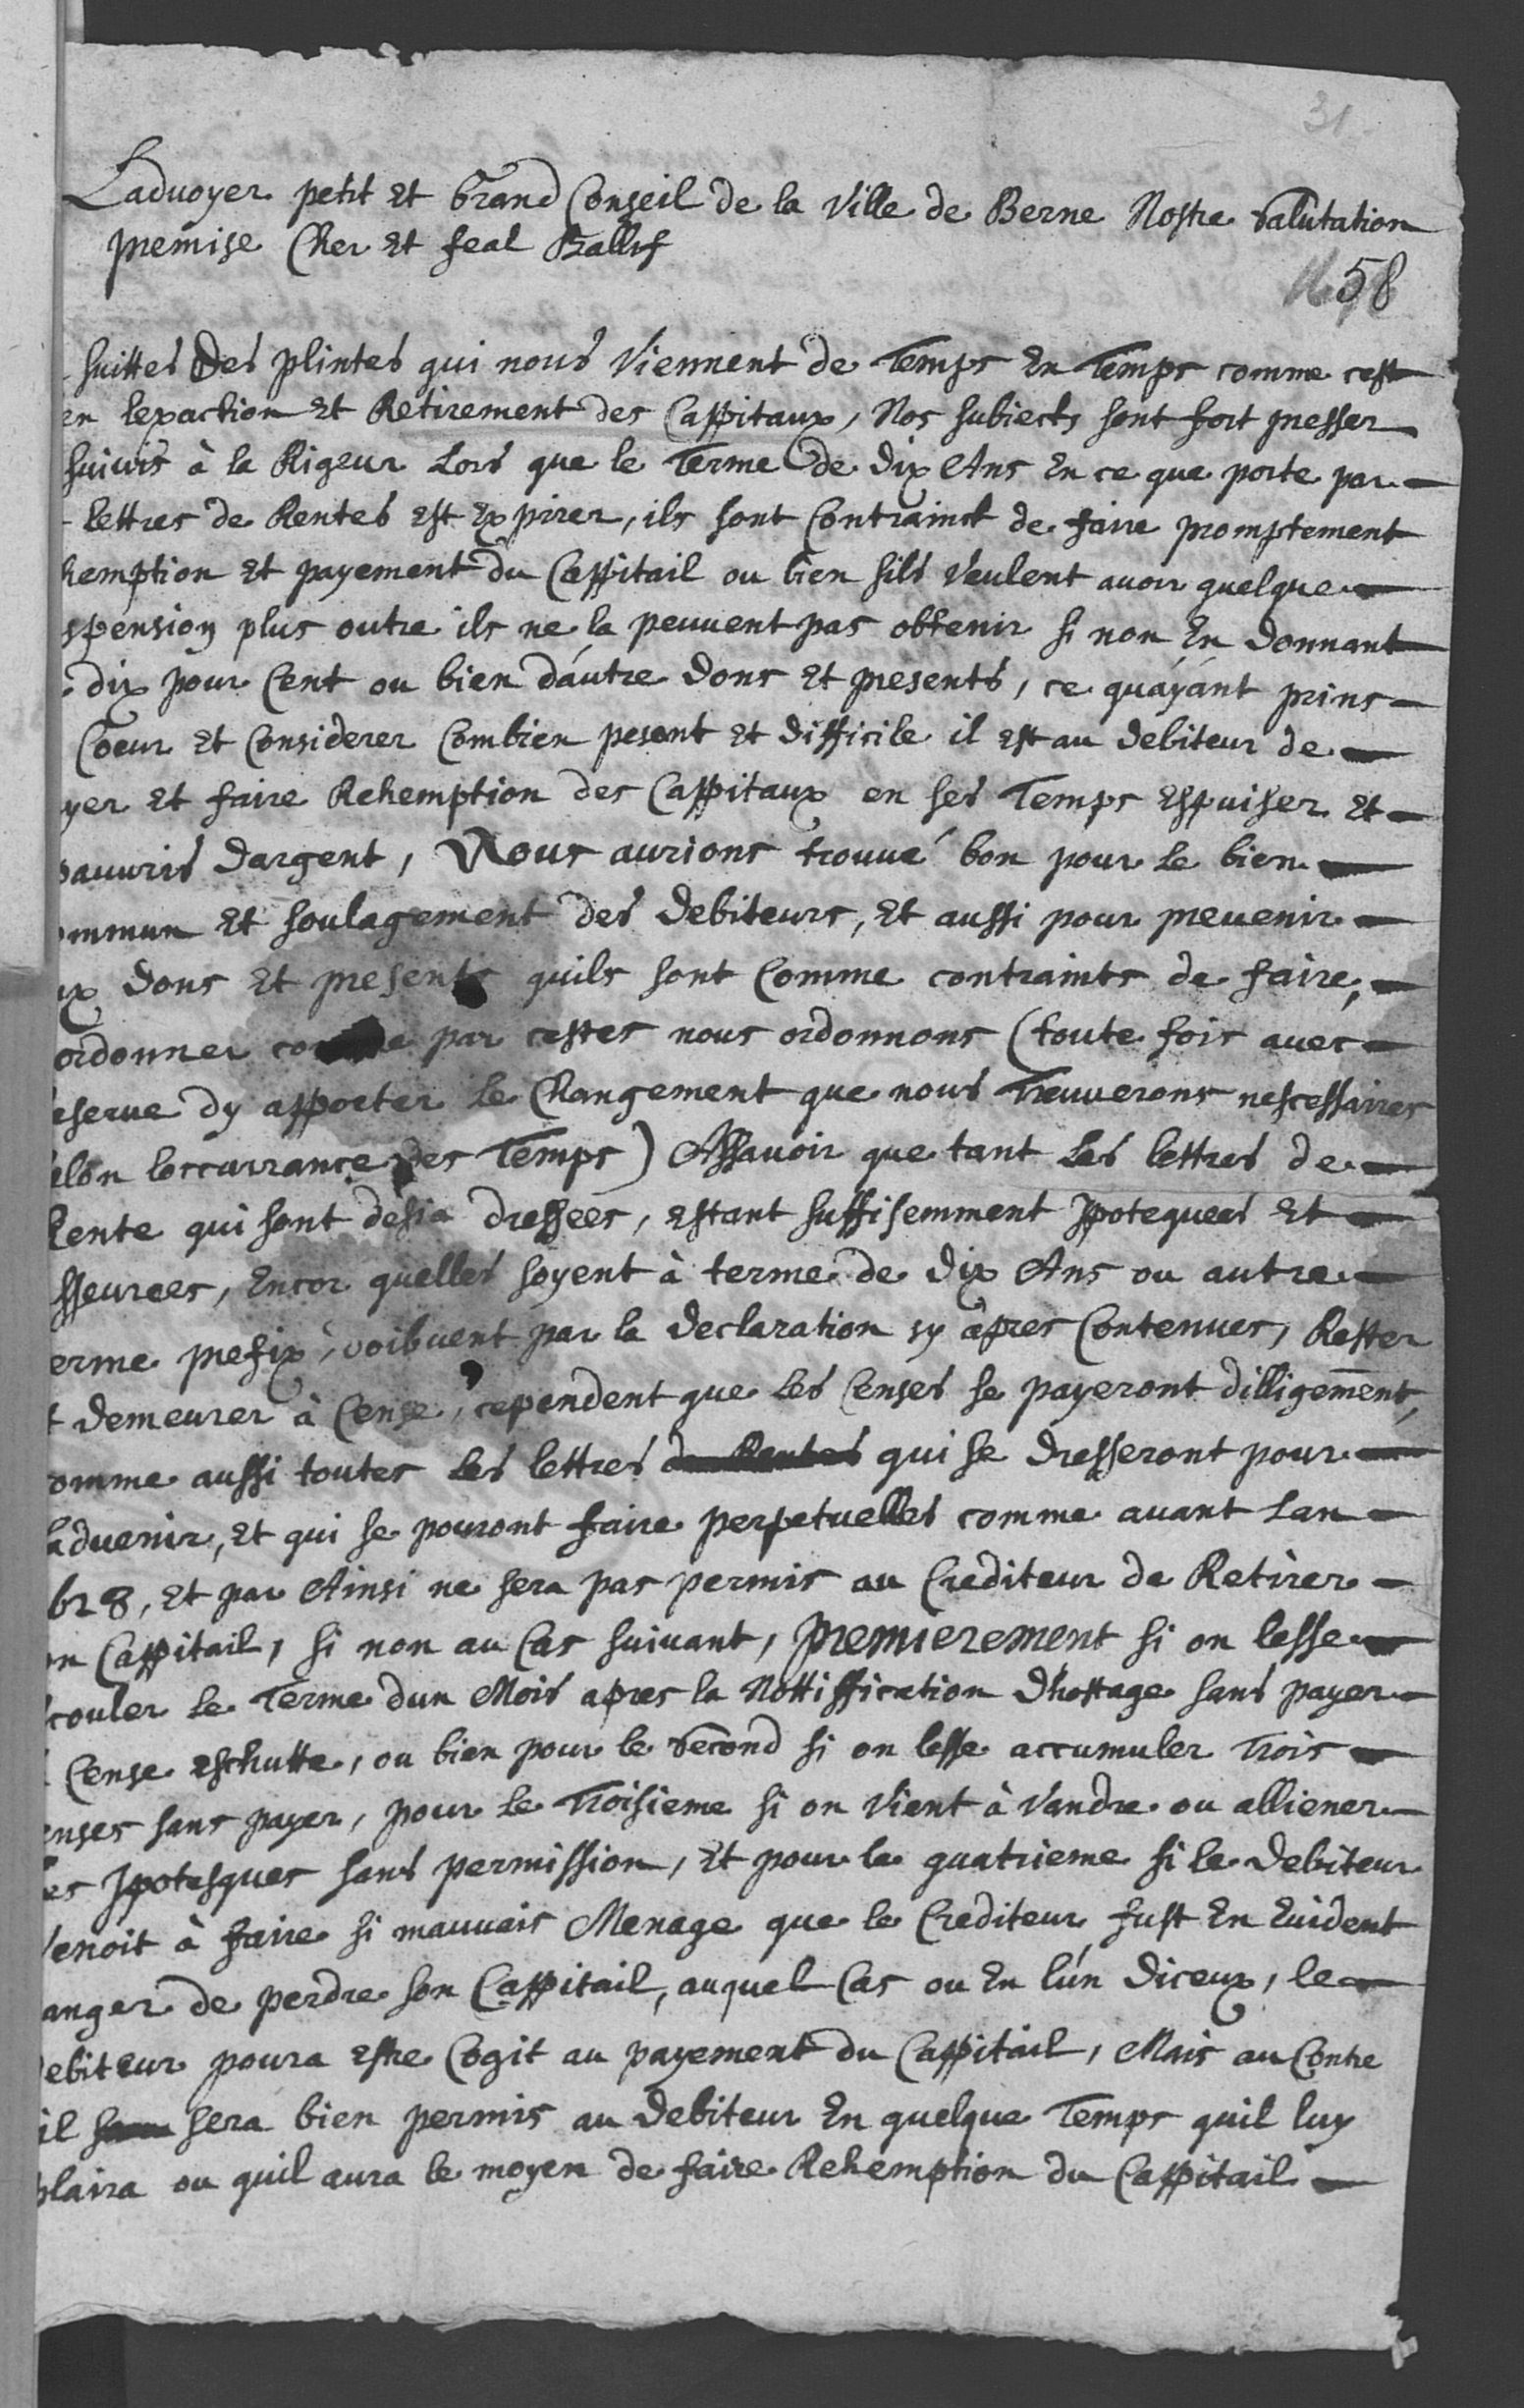 31
Laduoyer petit et Grand Conseil de la Ville de Berne Nostre salutation
premise Cher et feal Ballif
58
suittes des plintes qui nous viennent de Temps en Temps comme cest
en lexaction et Retirement des Cappitaux, Nos subiects sont fort presser
suiuis à la Rigeur Lors que le Terme de dix Ans en ce que porte par
lettres de Rentes est expirer, ils sont Contrainct de faire promptement
hemption et payement du Cappitail ou bien sils veulent auoir quelque
spension plus outre ils ne la peuuent pas obtenir si non en donnant
dix pour Cent ou bien dautre dons et presents, ce quayant prins
Coeur et Considerer Combien pesent et difficile il est au debiteur de
yer et faire Rehemption des Cappitaux en ses Temps espuiser et
pauuris dargent, Nous aurions trouué bon pour le bien
ommun et soulagement des debiteurs, et aussi pour preuenir
ux dons et presents quils sont Comme contraints de faire,
ordonner comme par cestes nous ordonnons (toute fois auec
eserue dy apporter le Changement que nous Treuuerons nescessaires
elon loccurrance des Temps) Assauoir que tant les lettres de
Rente qui sont desia dressees, estant suffisemment Ipotequees et
sseurees, encor quelles soyent à terme de dix Ans ou autre
erme prefix, doibuent par la declaration sy apres Contenues, Rester
t demeurer à Cense, cependent que les Censes se payeront dilligement,
omme aussi toutes les lettres de Rentes qui se dresseront pour
laduenir, et qui se pouront faire perpetuelles comme auant Lan
628, et par Ainsi ne sera pas permis au Crediteur de Retirer
on Cappitail, si non au Cas suiuant, premierement si on lesse
couler le Terme dun Mois apres la Nottiffication dhostage sans payer
Cense eschutte, ou bien pour le second si on lesse accumuler Trois
enses sans payer, pour le Troisieme si on vient à vandre ou alliener
es Ipotesques sans permission, et pour le quatrieme si le debiteur
Venoit à faire si mauuais Menage que le Crediteur fust en euident
anger de perdre son Cappitail, auquel Cas ou en lun diceux, le
debiteur poura estre Cogit au payement du Cappitail, Mais au Contre
il sera bien permis au debiteur en quelque Temps quil luy
plaira ou quil aura le moyen de faire Rehemption du Cappitail